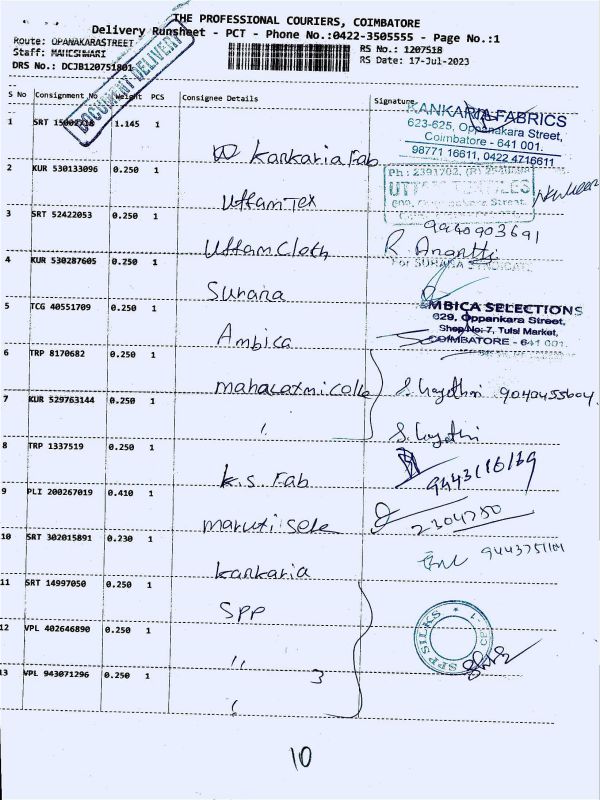 THE PROFESSIONAL COURIERS, COIMBATORE
Delivery Runsheet - PCT - Phone No.:0422-3505555 - Page No.:1
Route: OPANAKARASTREET
RS No.: 1207518
Staff: MAHESHWARI
RS Date: 17-Jul-2023
DRS No.: DCJB120751801
DOCUMENT DELIVERY
S No Consignment No Weight PCS Consignee Details Signature
1 SRT 1.145 1 Kankaria Fab
KANKARIA FABRICS
623-625, Oppanakara Street,
Coimbatore - 641 001.
98771 16611, 0422 4716611
2 KUR 530133096 0.250 1 Uttam Tex
3 SRT 52422053 0.250 1 Uttam Cloth
9940903691
4 KUR 530287605 0.250 1 Suhana
5 TCG 40551709 0.250 1 Ambica
AMBICA SELECTIONS
629, Oppankara Street,
Shop No: 7, Tulsi Market,
COIMBATORE - 641 001.
6 TRP 8170682 0.250 1
7 KUR 529763144 0.250 1 "
8 TRP 1337519 0.250 1 K.S. Fab
9 PLI 200267019 0.410 1 maruti sele
2304750
10 SRT 302015891 0.230 1 Kankaria
11 SRT 14997050 0.250 1 SPP
12 VPL 402646890 0.250 1 "
SPP SILKS
13 VPL 943071296 0.250 1 "
3
10